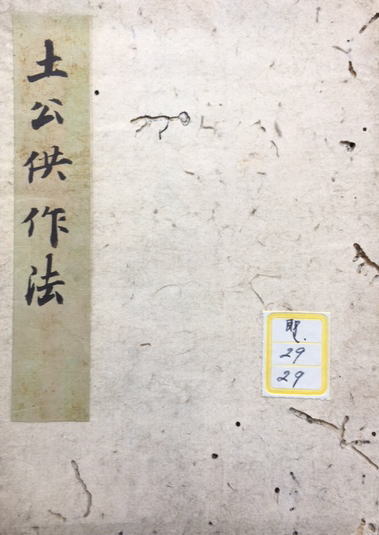 土公供作法
財
29
29